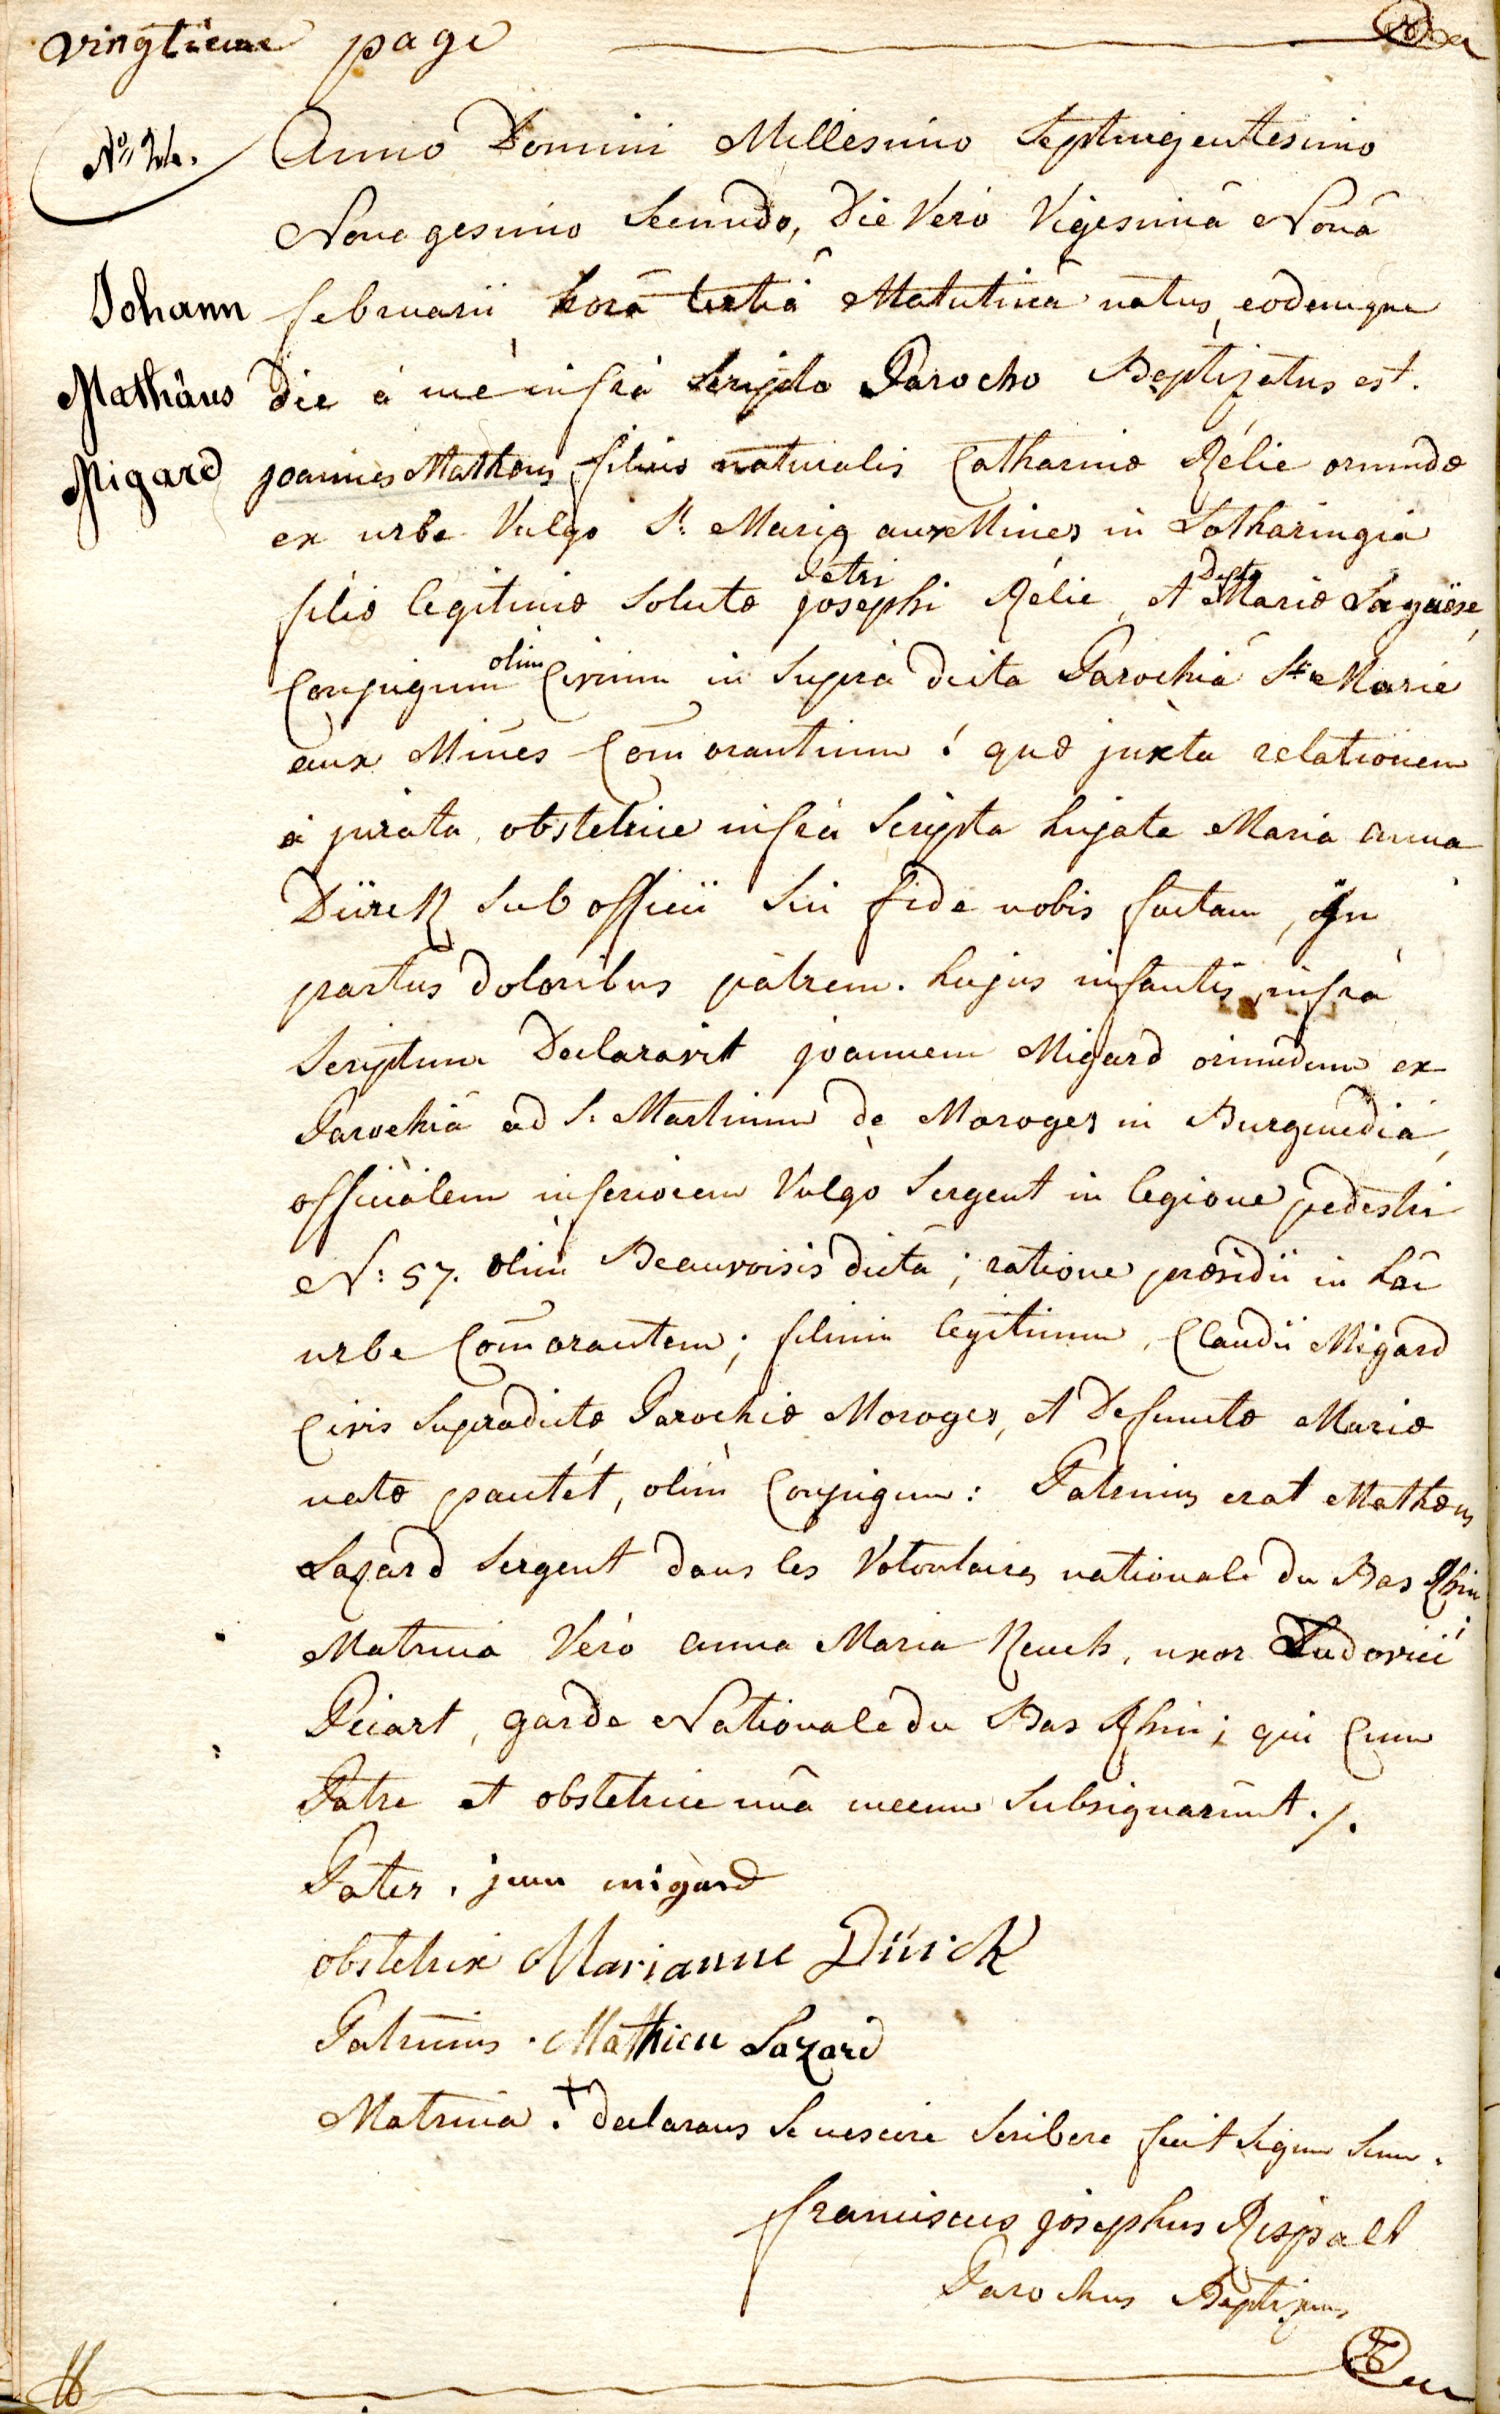 vingtieme page
No 24.
Anno Domini Millesimo Septingentesimo
Nonagesimo Secundo, Die Vero Vigesimâ Nonâ
Johann
februarii horâ tertiâ Matutinâ natus, eodemque
Mathäus
die à me infrà Scripto Parocho Baptizatus est.
Migard
joannes Mathæus filius naturalis Catharinæ Rélie oriundæ
ex urbe Vulgo St. Marie aux Mines in Lotharingiâ
Petri Deftæ
filiæ legitimæ Solutæ josephi Rélie, et Mariæ Lagüese,
olim
Conjugum Civium in Suprà dicta Parochiâ Ste Marie
aux Mines Com̄orantium! quæ juxta relationem
à jurata obstetrice infrà Scripta hujate Maria anna
Dürck Sub officii Sui fide nobis factam, in
partus doloribus patrem hujus infantis infrà
Scriptum Declaravit joannem Migard oriundum ex
Parochiâ ad S. Martinum de Moroges in Burgundiâ,
officialem inferiorem Vulgò Sergent in legione pedestri
N: 57. olim Beauvoisis dictâ; ratione præsidii in hâc
urbe Com̄orantem; filium legitimum, Claudii Migard
Civis Supradictæ Parochiæ Moroges, et Defunctæ Mariæ
natæ pautét, olim Conjugum: Patrinus erat Mathæus
Lazard Sergent dans les Volontaires nationale du Bas Rhin;
Matrina Verò anna Maria Keuch, uxor Ludovici
Piciart, garde Nationale du Bas Rhin; qui Cum
Patre et obstetrice unâ mecum Subsignarunt ./.
Pater. jean migard
obstetrix Marianne Dürck
Patrinus. Mathieu Lazard
Matrina. + declarans Se nescire Scribere fecit Signum Suum.
franciscus josephus Rispalt
Parochus Baptizans